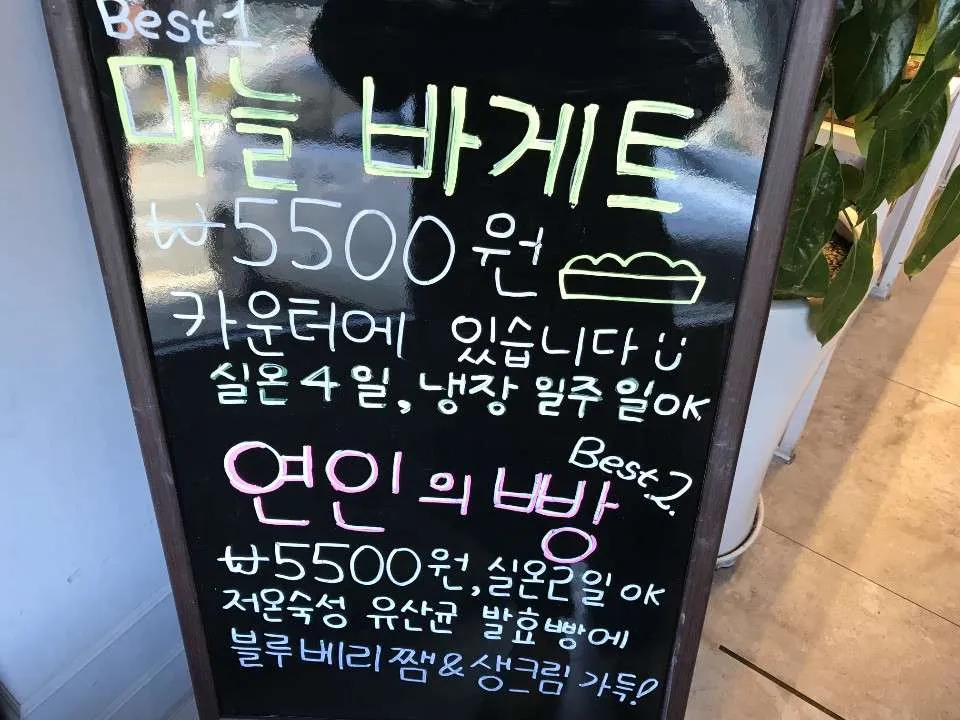 Best 1.
마늘 바게트
₩5500원
카운터에 있습니다
실온 4일, 냉장 일주일OK
Best.2.
연인의 빵
₩5500원, 실온2일 OK
저온숙성 유산균 발효빵에
블루베리쨈&생크림 가득!